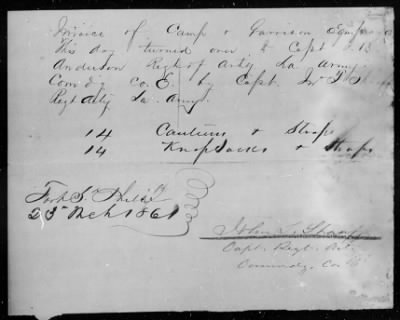 Invoice of Camp & Garrison Equipage
this day turned over to Capt
Anderson Regt of Arty La. Army
Com'dg Co. E. by Capt. Jno
Regt Arty La. Army.
14 Canteens & Straps
14 Knapsacks & Straps
Fort St. Philip
23d Mch 1861
Capt. Regt. Art.
Commdg. Co.